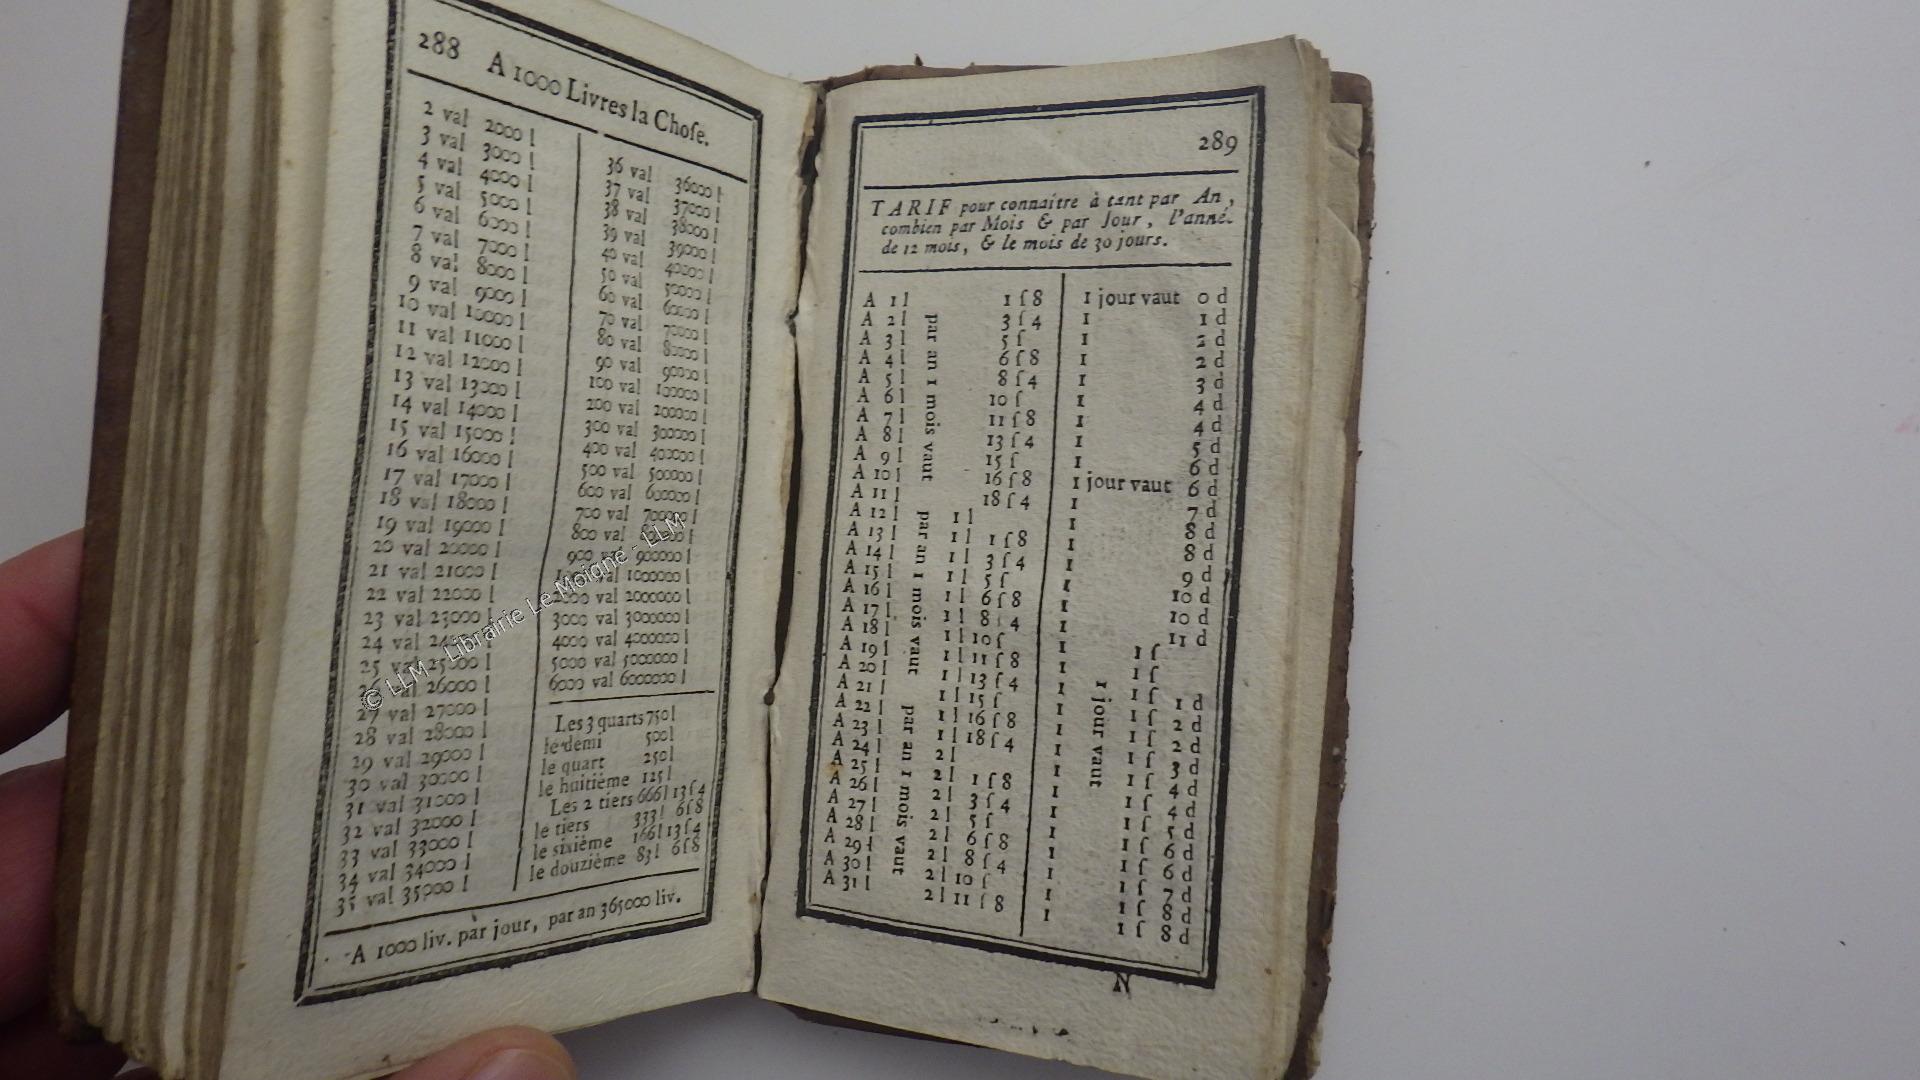 288 A 1000 Livres la Choſe.
2 val 2000 l
3 val 3000 l
4 val 4000 l
5 val 5000 l
6 val 6000 l
7 val 7000 l
8 val 8000 l
9 val 9000 l
10 val 10000 l
11 val 11000 l
12 val 12000 l
13 val 13000 l
14 val 14000 l
15 val 15000 l
16 val 16000 l
17 val 17000 l
18 val 18000 l
19 val 19000 l
20 val 20000 l
21 val 21000 l
22 val 22000 l
23 val 23000 l
24 val
25 val 25000 l
26 val 26000 l
27 val 27000 l
28 val 28000 l
29 val 29000 l
30 val 30000 l
31 val 31000 l
32 val 32000 l
33 val 33000 l
34 val 34000 l
35 val 35000 l
36 val 36000 l
37 val 37000 l
38 val 38000 l
39 val 39000 l
40 val 40000 l
50 val 50000 l
60 val 60000 l
70 val 70000 l
80 val 80000 l
90 val 90000 l
100 val 100000 l
200 val 200000 l
300 val 300000 l
400 val 400000 l
500 val 500000 l
600 val 600000 l
700 val 700000 l
800 val 800000 l
900 val 900000 l
val 1000000 l
2000 val 2000000 l
3000 val 3000000 l
4000 val 4000000 l
5000 val 5000000 l
6000 val 6000000 l
Les 3 quarts 750 l
le demi 500 l
le quart 250 l
le huitième 125 l
Les 2 tiers 666 l 13 ſ 4
le tiers 333 l 6 ſ 8
le sixième 166 l 13 ſ 4
le douzième 83 l 6 ſ 8
A 1000 liv. par jour, par an 365000 liv.
© LLM - Librairie Le Moigne - LLM
289
TARIF pour connaitre à tant par An,
combien par Mois & par Jour, l'anné.
de 12 mois, & le mois de 30 jours.
A 1 l par an 1 mois vaut 1 ſ 8 1 jour vaut 0 d
A 2 l 3 ſ 4 1 1 d
A 3 l 5 ſ 1 2 d
A 4 l 6 ſ 8 1 2 d
A 5 l 8 ſ 4 1 3 d
A 6 l 10 ſ 1 4 d
A 7 l 11 ſ 8 1 4 d
A 8 l 13 ſ 4 1 5 d
A 9 l 15 ſ 1 6 d
A 10 l 16 ſ 8 1 jour vaut 6 d
A 11 l 18 ſ 4 1 7 d
A 12 l par an 1 mois vaut 1 l 1 8 d
A 13 l 1 l 1 ſ 8 1 8 d
A 14 l 1 l 3 ſ 4 1 9 d
A 15 l 1 l 5 ſ 1 10 d
A 16 l 1 l 6 ſ 8 1 10 d
A 17 l 1 l 8 ſ 4 1 11 d
A 18 l 1 l 10 ſ 1 1 ſ
A 19 l 1 l 11 ſ 8 1 1 ſ
A 20 l 1 l 13 ſ 4 1 1 jour vaut 1 ſ 1 d
A 21 l 1 l 15 ſ 1 1 ſ 2 d
A 22 l par an 1 mois vaut 1 l 16 ſ 8 1 1 ſ 2 d
A 23 l 1 l 18 ſ 4 1 1 ſ 3 d
A 24 l 2 l 1 1 ſ 4 d
A 25 l 2 l 1 ſ 8 1 1 ſ 4 d
A 26 l 2 l 3 ſ 4 1 1 ſ 5 d
A 27 l 2 l 5 ſ 1 1 ſ 6 d
A 28 l 2 l 6 ſ 8 1 1 ſ 6 d
A 29 l 2 l 8 ſ 4 1 1 ſ 7 d
A 30 l 2 l 10 ſ 1 1 ſ 8 d
A 31 l 2 l 11 ſ 8 1 1 ſ 8 d
N